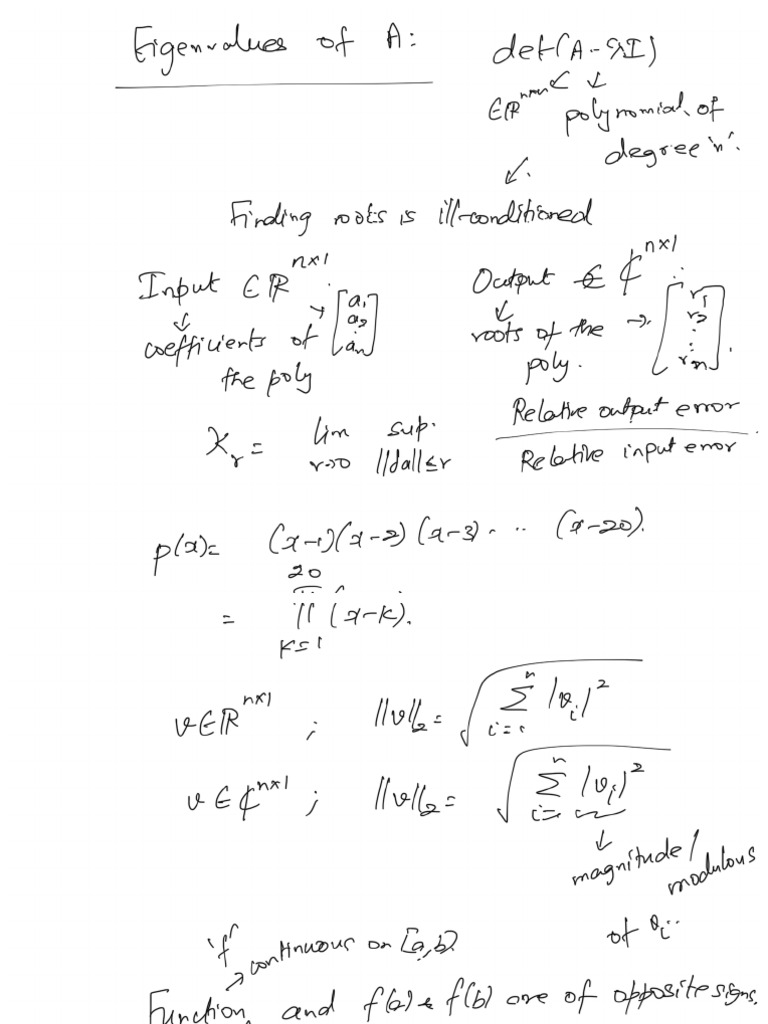 Eigenvalues of A: det(A-λI)
∈ℝ^{n×n} ↙ ↓ polynomial of
degree 'n'.
↙.
Finding roots is ill-conditioned
Input ∈ ℝ^{n×1} Output ∈ ℂ^{n×1}
↓ coefficients of → [a₁ a₂ ⋮ aₙ] ↓ roots of the → [r₁ r₂ ⋮ rₙ].
the poly poly.
κ_r = lim_{r→0} sup_{||δa||≤r} Relative output error / Relative input error
p(x)= (x-1)(x-2)(x-3)... (x-20).
= ∏_{k=1}^{20} (x-k).
v∈ℝ^{n×1} ; ||v||₂ = √(∑_{i=1}^{n} |v_i|²)
v∈ℂ^{n×1} ; ||v||₂ = √(∑_{i=1}^{n} |v_i|²)
↓
magnitude/
modulous
of v_i..
'f' continuous on [a,b].
Function and f(a) & f(b) are of opposite signs.